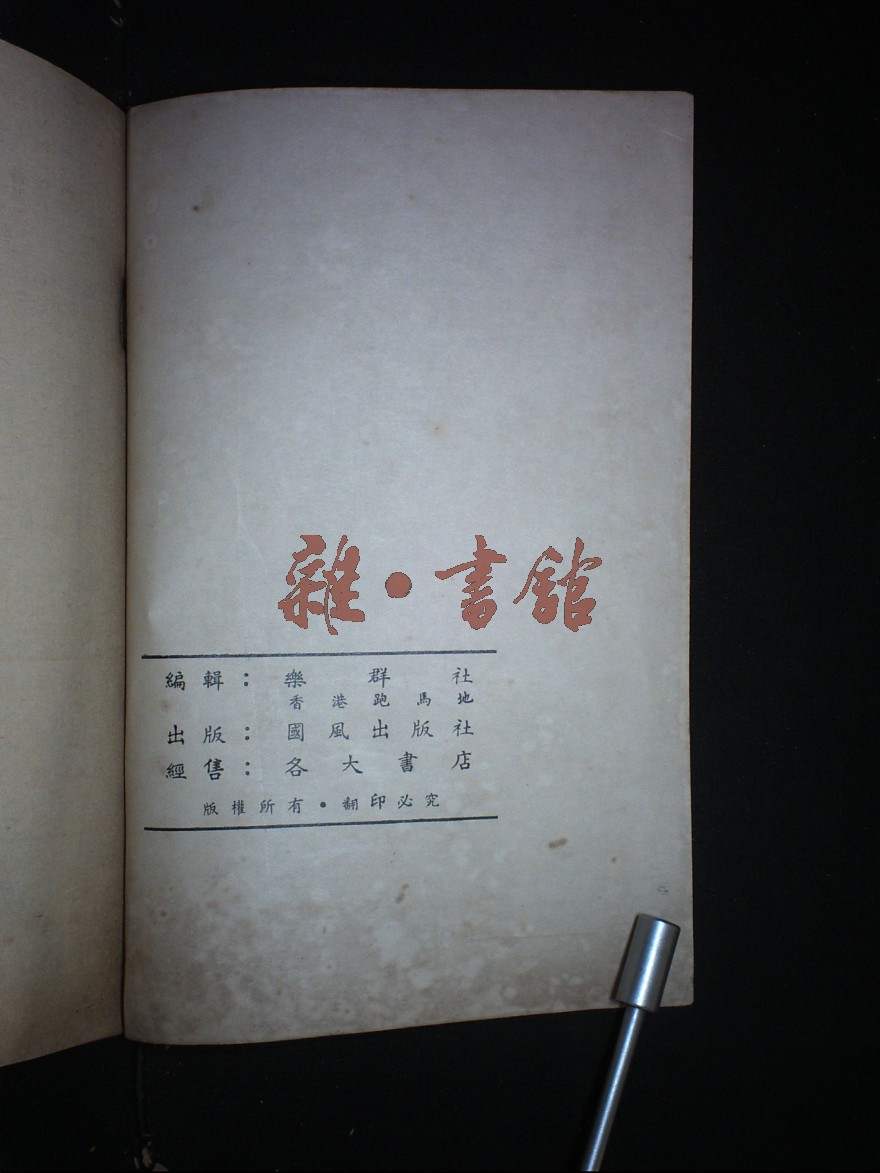 雜·書館
編輯：樂群社
香港跑馬地
出版：國風出版社
經售：各大書店
版權所有·翻印必究